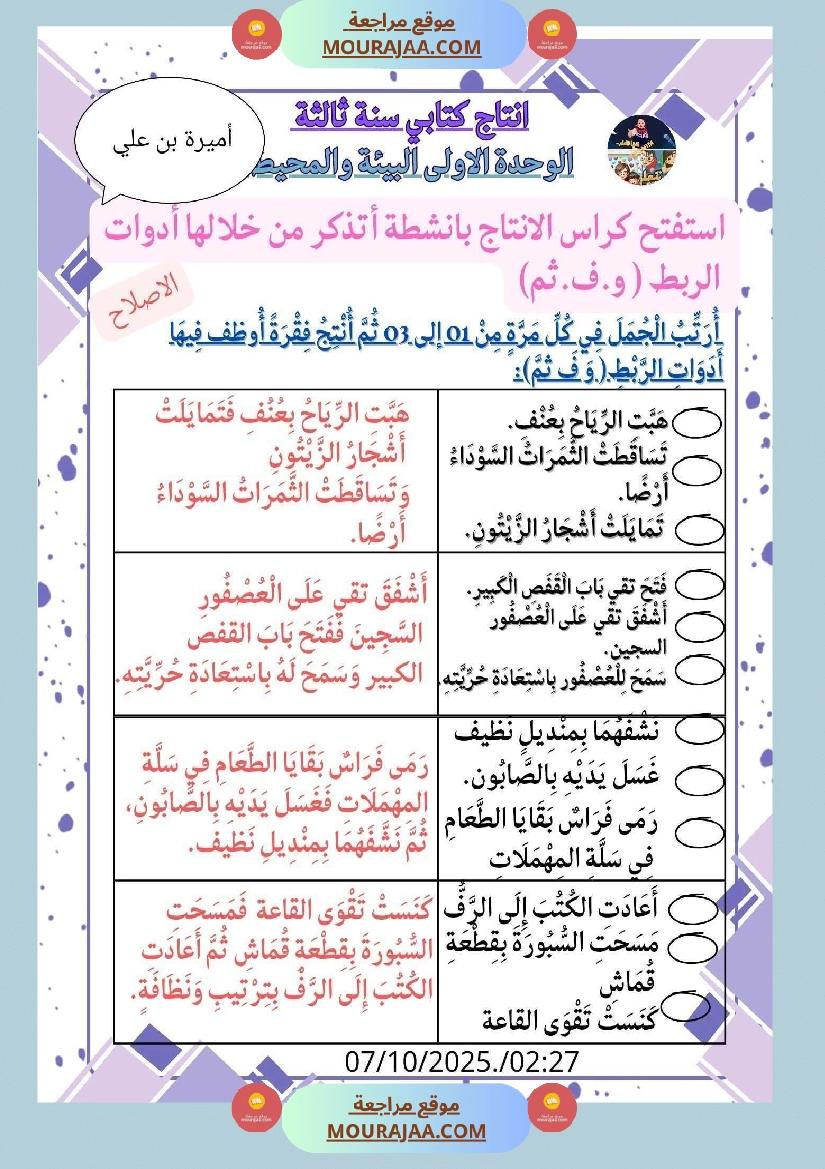 موقع مراجعة
MOURAJAA.COM
انتاج كتابي سنة ثالثة
أميرة بن علي
الوحدة الاولى البيئة والمحيط
استفتح كراس الانتاج بانشطة أتذكر من خلالها أدوات
الربط ( و.ف.ثم)
الاصلاح
أُرَتِّبُ الْجُمَلَ فِي كُلِّ مَرَّةٍ مِنْ 01 إلى 03 ثُمَّ أُنْتِجُ فِقْرَةً أُوظف فِيهَا
أَدَوَاتِ الرَّبْطِ(وَ فَ ثمَّ):
هَبَّتِ الرِّيَاحُ بِعُنْفٍ.
تَسَاقَطَتْ الثَّمَرَاتُ السَّوْدَاءُ
أَرْضًا.
تَمَايَلَتْ أَشْجَارُ الزَّيْتُونِ.
هَبَّتِ الرِّيَاحُ بِعُنُفِ فَتَمَايَلَتْ
أَشْجَارُ الزَّيْتُونِ
وَتَسَاقَطَتْ الثَّمَرَاتُ السَّوْدَاءُ
أَرْضًا.
فَتَحَ تقي بَابَ الْقَفَصِ الْكَبِيرِ.
أَشْفَقَ تقي عَلَى الْعُصْفُور
السجين.
سَمَحَ لِلْعُصْفُور بِاسْتِعَادَةِ حُرِّيَّتِهِ.
أَشْفَقَ تقي عَلَى الْعُصْفُورِ
السَّجِينَ فَفَتَحَ بَابَ القفص
الكبير وَسَمَحَ لَهُ بِاسْتِعَادَةِ حُرِّيَّتِهِ.
نَشَّفَهُمَا بِمِنْدِيلٍ نَظيف
غَسَلَ يَدَيْهِ بِالصَّابُون.
رَمَى فَرَاسٌ بَقَايَا الطَّعَامِ
فِي سَلَّةِ المِهْمَلَاتِ
رَمَى فَرَاسٌ بَقَايَا الطَّعَامِ فِي سَلَّةِ
المِهْمَلَاتِ فَغَسَلَ يَدَيْهِ بِالصَّابُونِ،
ثُمَّ نَشَّفَهُمَا بِمِنْدِيلِ نَظِيف.
أَعَادَتِ الكُتُبَ إِلَى الرَّفِّ
مَسَحَتِ السُّبُورَةَ بِقِطْعَةِ
قُمَاشِ
كَنَسَتْ تَقْوَى القاعة
كَنَسَتْ تَقْوَى القاعة فَمَسَحَت
السُّبُورَةَ بِقِطْعَة قُمَاشِ ثُمَّ أَعَادَت
الكُتُبَ إِلَى الرَّفِّ بِتِرْتِيبِ وَنَظَافَةٍ.
07/10/2025./02:27
موقع مراجعة
MOURAJAA.COM